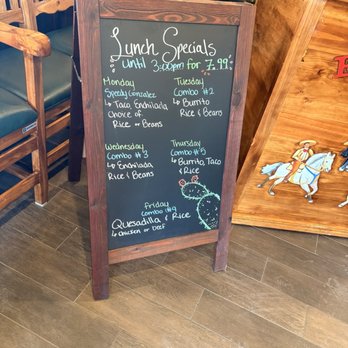 Lunch Specials
until 3:00pm for 7.99
Monday
Speedy Gonzalez
↳ Taco, Enchilada
Choice of
Rice or Beans
Tuesday
Combo #2
↳ Burrito
Rice & Beans
Wednesday
Combo #3
↳ Enchilada
Rice & Beans
Thursday
Combo #5
↳ Burrito, Taco
& Rice
Friday
Combo #9
Quesadilla & Rice
↳ Chicken or beef